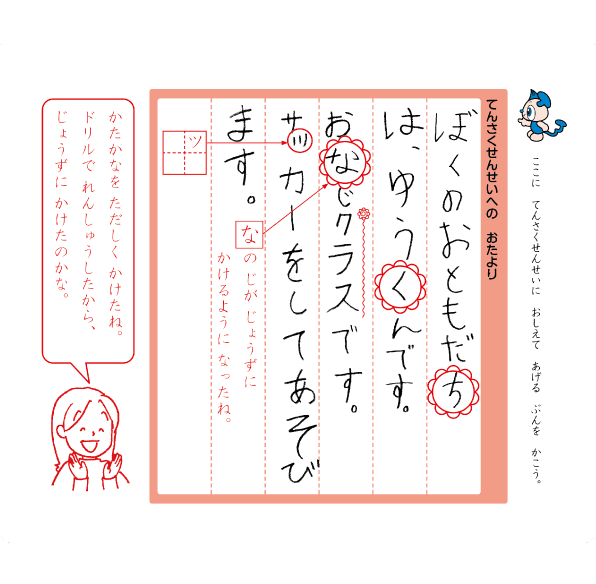 ここに てんさくせんせいに おしえて あげる ぶんを かこう。
てんさくせんせいへの おたより
ぼくのおともだち
は、ゆうくんです。
おなじクラスです。
サッカーをしてあそび
ます。
ッ
な
のじが じょうずに
かけるように なったね。
かたかなを ただしく かけたね。
ドリルで れんしゅうしたから、
じょうずに かけたのかな。